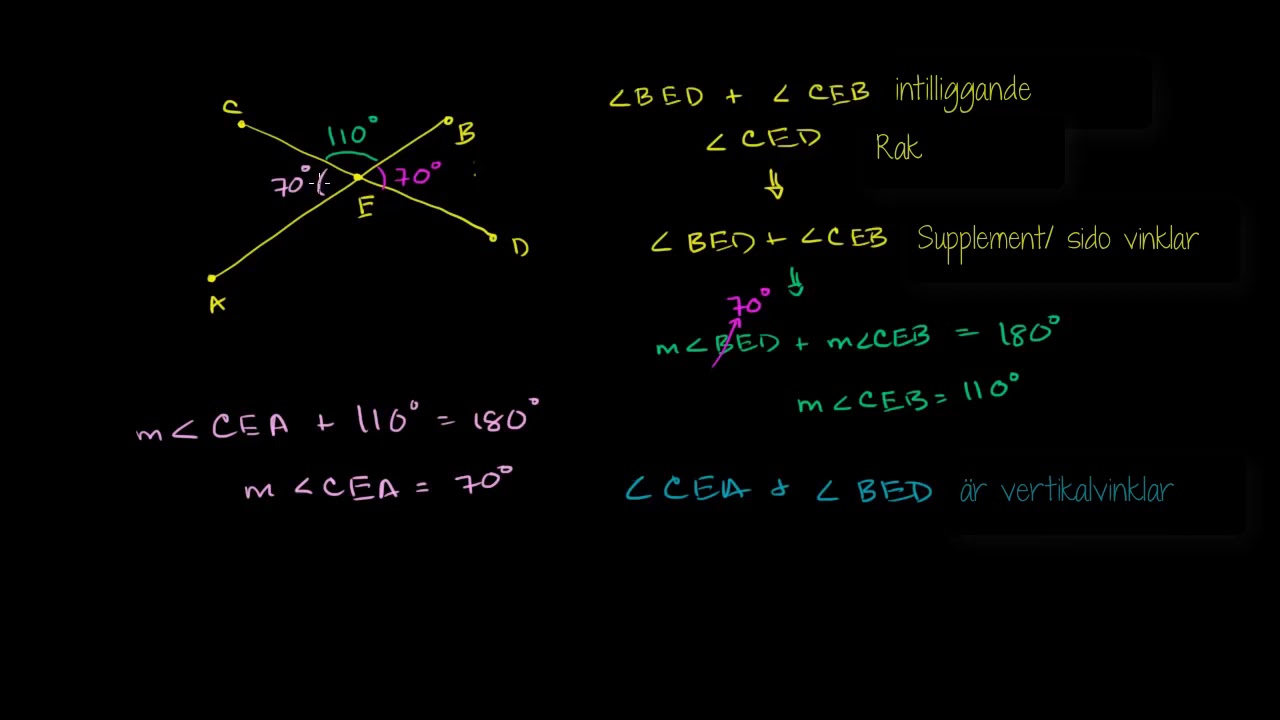 C
110°
B
70°
70°
E
D
A
∠BED + ∠CEB intilliggande
∠CED Rak
⇓
∠BED + ∠CEB Supplement/ sido vinklar
⇓
70°
m∠BED + m∠CEB = 180°
m∠CEB = 110°
m∠CEA + 110° = 180°
m∠CEA = 70°
∠CEA & ∠BED är vertikalvinklar